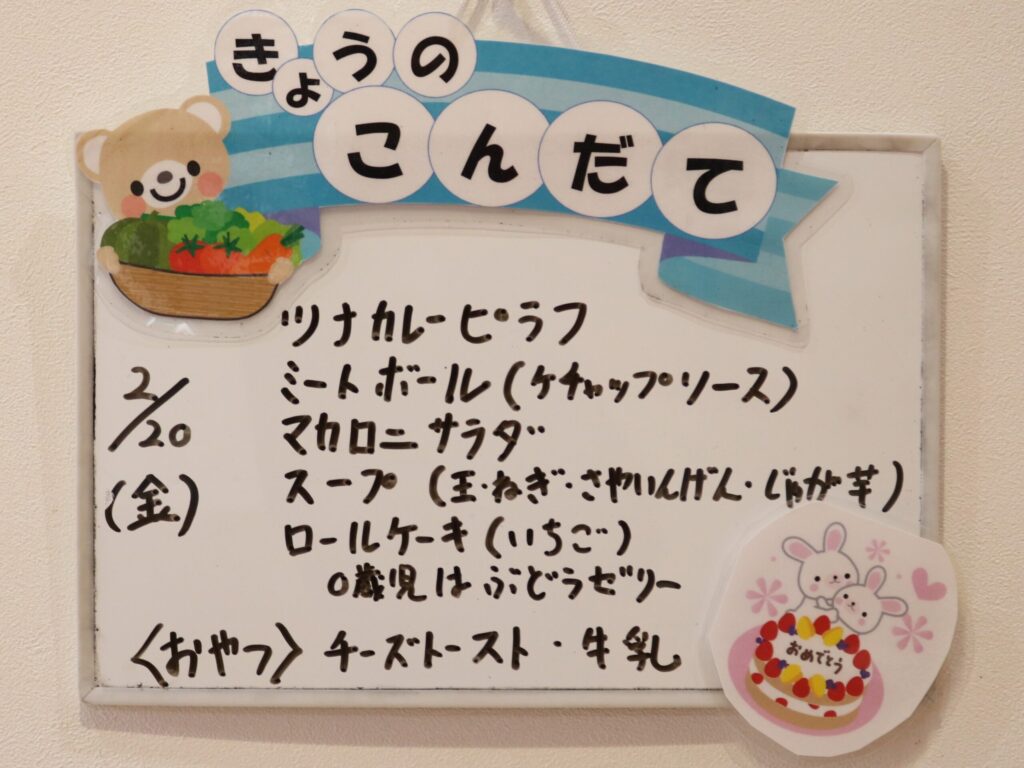 きょうの
こんだて
2/20
(金)
ツナカレーピラフ
ミートボール(ケチャップソース)
マカロニサラダ
スープ(玉・ねぎ・さやいんげん・じゃが芋)
ロールケーキ(いちご)
0歳児はぶどうゼリー
〈おやつ〉チーズトースト・牛乳
おめでとう